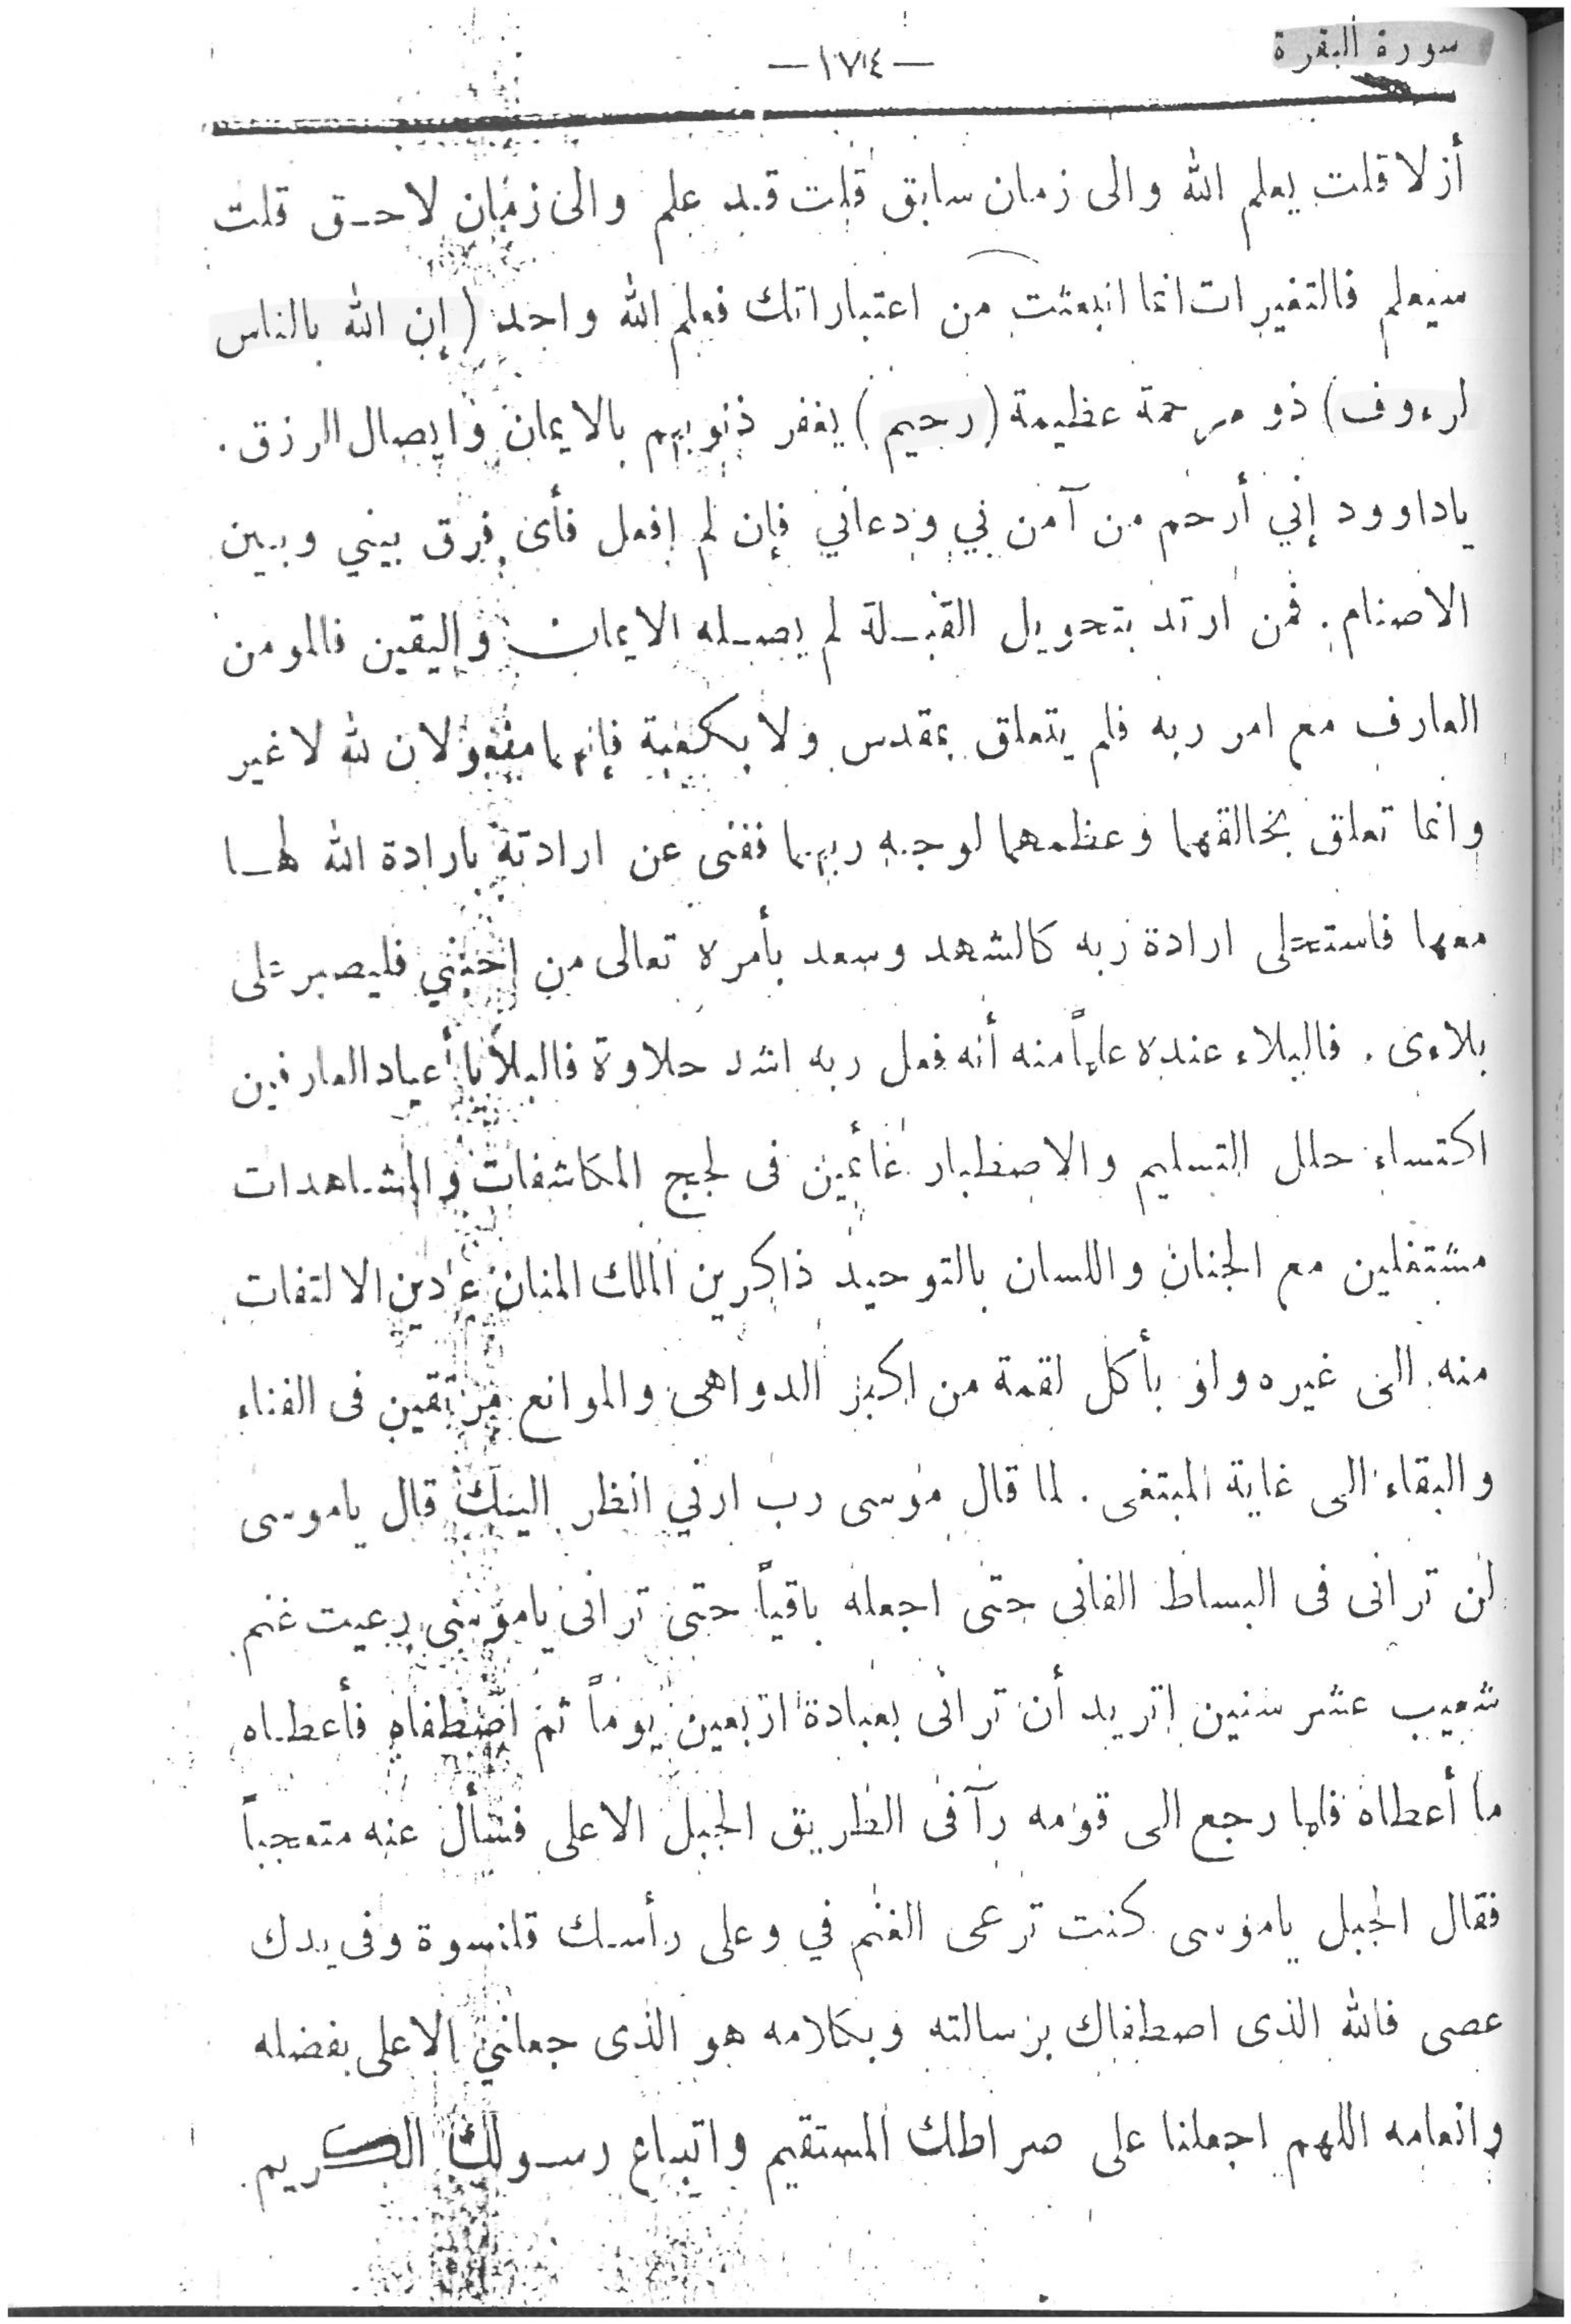 سورة البقرة
—١٧٤—
أزلا قلت يعلم الله والى زمان سابق قلت قد علم والى زمان لاحق قلت
سيعلم فالتغيرات انما انبعثت من اعتباراتك فعلم الله واحد (إن الله بالناس
لرءوف) ذو مرحمة عظيمة (رحيم) يغفر ذنوبهم بالايمان وايصال الرزق.
ياداوود إني أرحم من آمن بي ودعاني فإن لم افعل فأى فرق بيني وبين
الاصنام. فمن ارتد بتحويل القبلة لم يصله الايمان واليقين فالمومن
العارف مع امر ربه فلم يتعلق بمقدس ولا بكعبة فإنهما مفعولان لله لا غير
وانما تعلق بخالقهما وعظمهما لوجه ربهما ففنى عن ارادته بارادة الله لهما
معها فاستحلى ارادة ربه كالشهد وسعد بأمره تعالى من احبني فليصبر على
بلاءى. فالبلاء عنده علماً منه أنه فعل ربه اشد حلاوة فالبلايا أعياد العارفين
اكتساء حلل التسليم والاصطبار غائمين فى لجج المكاشفات والمشاهدات
مشتغلين مع الجنان واللسان بالتوحيد ذاكرين الملك المنان عادين الالتفات
منه الى غيره ولو بأكل لقمة من اكبر الدواهى والموانع مرتقين فى الفناء
والبقاء الى غاية المبتغى. لما قال موسى رب ارني انظر اليك قال ياموسى
لن ترانى فى البساط الفانى حتى اجعله باقياً حتى ترانى ياموسى رعيت غنم
شعيب عشر سنين اتريد أن ترانى بعبادة اربعين يوماً ثم اصطفاه فأعطاه
ما أعطاه فلما رجع الى قومه رآ فى الطريق الجبل الاعلى فسأل عنه متعجباً
فقال الجبل ياموسى كنت ترعى الغنم في وعلى رأسك قلنسوة وفى يدك
عصى فالله الذى اصطفاك برسالته وبكلامه هو الذى جعلني الاعلى بفضله
وانعامه اللهم اجعلنا على صراطك المستقيم واتباع رسولك الكريم.